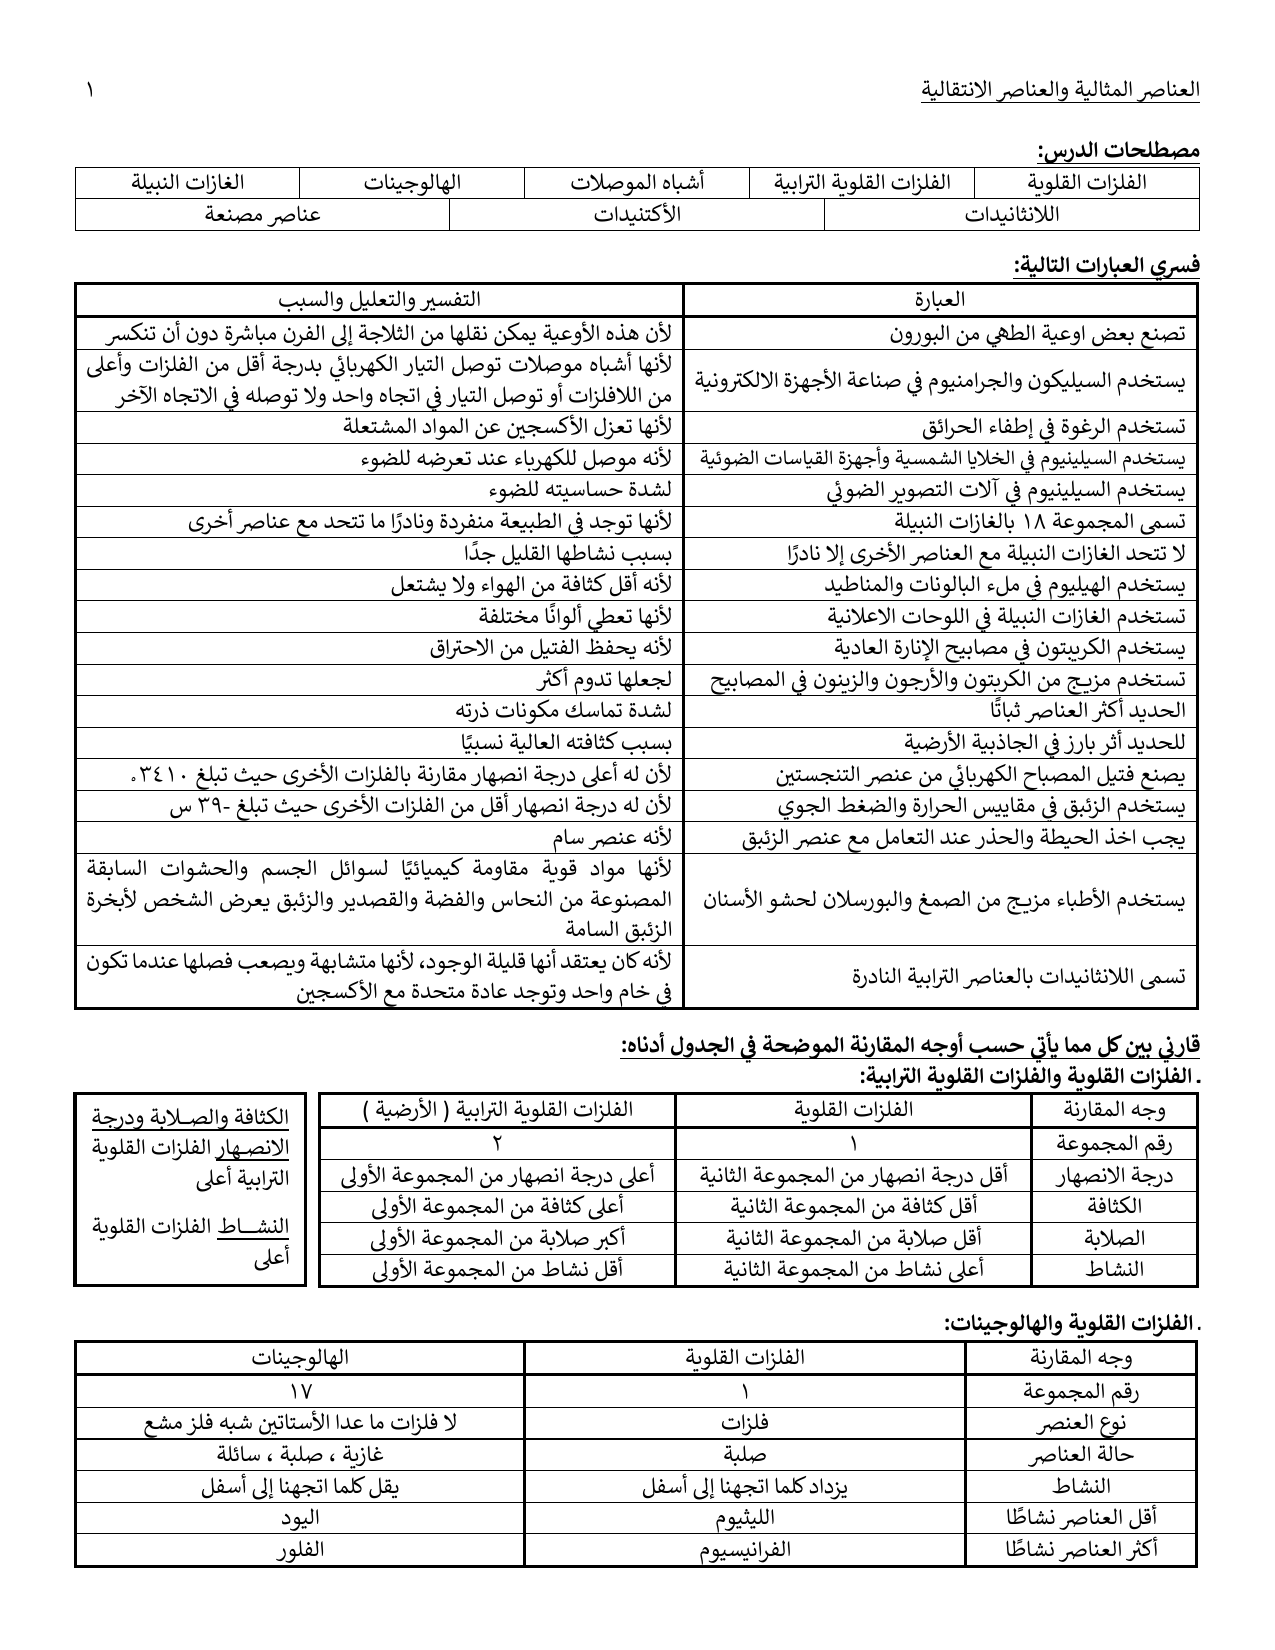 العناصر المثالية والعناصر الانتقالية ١
مصطلحات الدرس:
الفلزات القلوية الفلزات القلوية الترابية أشباه الموصلات الهالوجينات الغازات النبيلة
اللانثانيدات الأكتنيدات عناصر مصنعة
فسري العبارات التالية:
العبارة التفسير والتعليل والسبب
تصنع بعض اوعية الطهي من البورون لأن هذه الأوعية يمكن نقلها من الثلاجة إلى الفرن مباشرة دون أن تنكسر
يستخدم السيليكون والجرامنيوم في صناعة الأجهزة الالكترونية لأنها أشباه موصلات توصل التيار الكهربائي بدرجة أقل من الفلزات وأعلى
من اللافلزات أو توصل التيار في اتجاه واحد ولا توصله في الاتجاه الآخر
تستخدم الرغوة في إطفاء الحرائق لأنها تعزل الأكسجين عن المواد المشتعلة
يستخدم السيلينيوم في الخلايا الشمسية وأجهزة القياسات الضوئية لأنه موصل للكهرباء عند تعرضه للضوء
يستخدم السيلينيوم في آلات التصوير الضوئي لشدة حساسيته للضوء
تسمى المجموعة ١٨ بالغازات النبيلة لأنها توجد في الطبيعة منفردة ونادرًا ما تتحد مع عناصر أخرى
لا تتحد الغازات النبيلة مع العناصر الأخرى إلا نادرًا بسبب نشاطها القليل جدًا
يستخدم الهيليوم في ملء البالونات والمناطيد لأنه أقل كثافة من الهواء ولا يشتعل
تستخدم الغازات النبيلة في اللوحات الاعلانية لأنها تعطي ألوانًا مختلفة
يستخدم الكريبتون في مصابيح الإنارة العادية لأنه يحفظ الفتيل من الاحتراق
تستخدم مزيج من الكربتون والأرجون والزينون في المصابيح لجعلها تدوم أكثر
الحديد أكثر العناصر ثباتًا لشدة تماسك مكونات ذرته
للحديد أثر بارز في الجاذبية الأرضية بسبب كثافته العالية نسبيًا
يصنع فتيل المصباح الكهربائي من عنصر التنجستين لأن له أعلى درجة انصهار مقارنة بالفلزات الأخرى حيث تبلغ ٣٤١٠°
يستخدم الزئبق في مقاييس الحرارة والضغط الجوي لأن له درجة انصهار أقل من الفلزات الأخرى حيث تبلغ -٣٩ س
يجب اخذ الحيطة والحذر عند التعامل مع عنصر الزئبق لأنه عنصر سام
يستخدم الأطباء مزيج من الصمغ والبورسلان لحشو الأسنان لأنها مواد قوية مقاومة كيميائيًا لسوائل الجسم والحشوات السابقة
المصنوعة من النحاس والفضة والقصدير والزئبق يعرض الشخص لأبخرة
الزئبق السامة
تسمى اللانثانيدات بالعناصر الترابية النادرة لأنه كان يعتقد أنها قليلة الوجود، لأنها متشابهة ويصعب فصلها عندما تكون
في خام واحد وتوجد عادة متحدة مع الأكسجين
قارني بين كل مما يأتي حسب أوجه المقارنة الموضحة في الجدول أدناه:
. الفلزات القلوية والفلزات القلوية الترابية:
وجه المقارنة الفلزات القلوية الفلزات القلوية الترابية ( الأرضية )
رقم المجموعة ١ ٢
درجة الانصهار أقل درجة انصهار من المجموعة الثانية أعلى درجة انصهار من المجموعة الأولى
الكثافة أقل كثافة من المجموعة الثانية أعلى كثافة من المجموعة الأولى
الصلابة أقل صلابة من المجموعة الثانية أكبر صلابة من المجموعة الأولى
النشاط أعلى نشاط من المجموعة الثانية أقل نشاط من المجموعة الأولى
الكثافة والصلابة ودرجة
الانصهار الفلزات القلوية
الترابية أعلى
النشاط الفلزات القلوية
أعلى
. الفلزات القلوية والهالوجينات:
وجه المقارنة الفلزات القلوية الهالوجينات
رقم المجموعة ١ ١٧
نوع العنصر فلزات لا فلزات ما عدا الأستاتين شبه فلز مشع
حالة العناصر صلبة غازية ، صلبة ، سائلة
النشاط يزداد كلما اتجهنا إلى أسفل يقل كلما اتجهنا إلى أسفل
أقل العناصر نشاطًا الليثيوم اليود
أكثر العناصر نشاطًا الفرانيسيوم الفلور